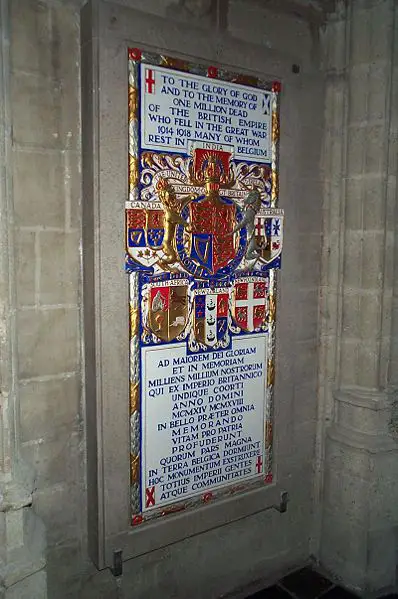 TO THE GLORY OF GOD
AND TO THE MEMORY OF
ONE MILLION DEAD
OF THE BRITISH EMPIRE
WHO FELL IN THE GREAT WAR
1914 1918 MANY OF WHOM
REST IN BELGIUM
INDIA
THE UNITED
KINGDOM OF GT BRITAIN
CANADA
AUSTRALIA
SOUTH AFRICA
NEW ZEALAND
NEWFOUNDLAND
AD MAIOREM DEI GLORIAM
ET IN MEMORIAM
MILLIENS MILLIUM NOSTRORUM
QUI EX IMPERIO BRITANNICO
UNDIQUE COORTI
ANNO DOMINI
MCMXIV MCMXVIII
IN BELLO PRÆTER OMNIA
MEMORANDO
VITAM PRO PATRIA
PROFUDERUNT
QUORUM PARS MAGNA
IN TERRA BELGICA DORMIUNT
HOC MONUMENTUM EXSTRUXERE
TOTIUS IMPERII GENTES
ATQUE COMMUNITATES